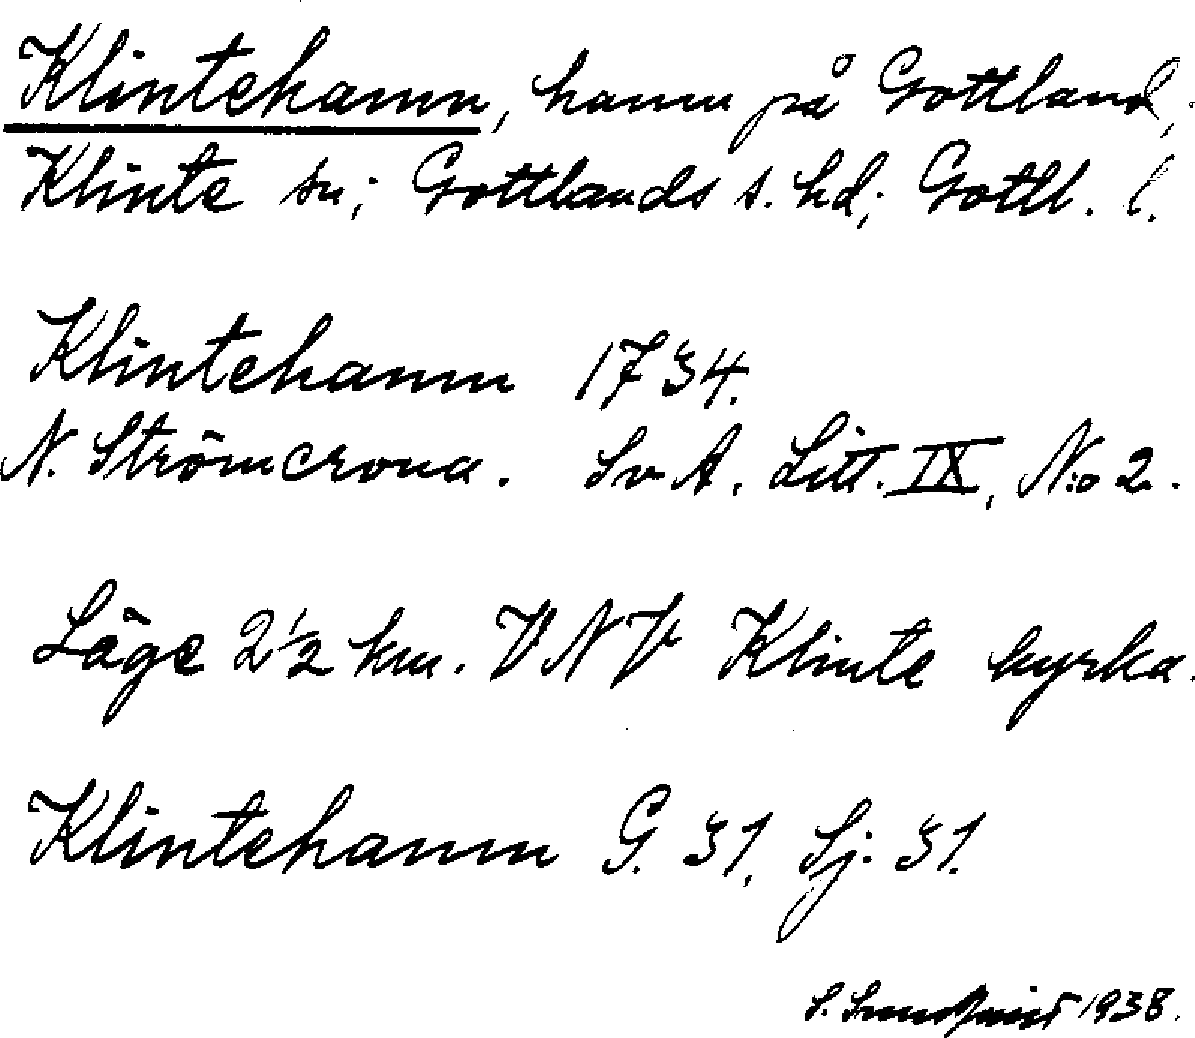 Klintehamn, hamn på Gottland,
Klinte sn; Gottlands s. hd; Gottl. l.
Klintehamn 1734.
N. Strömcrona. Sv A. Litt. IX, N:o 2.
Läge 2 1/2 km. VNV Klinte kyrka.
Klintehamn G. 31. Sj. 31.
S. 1938.